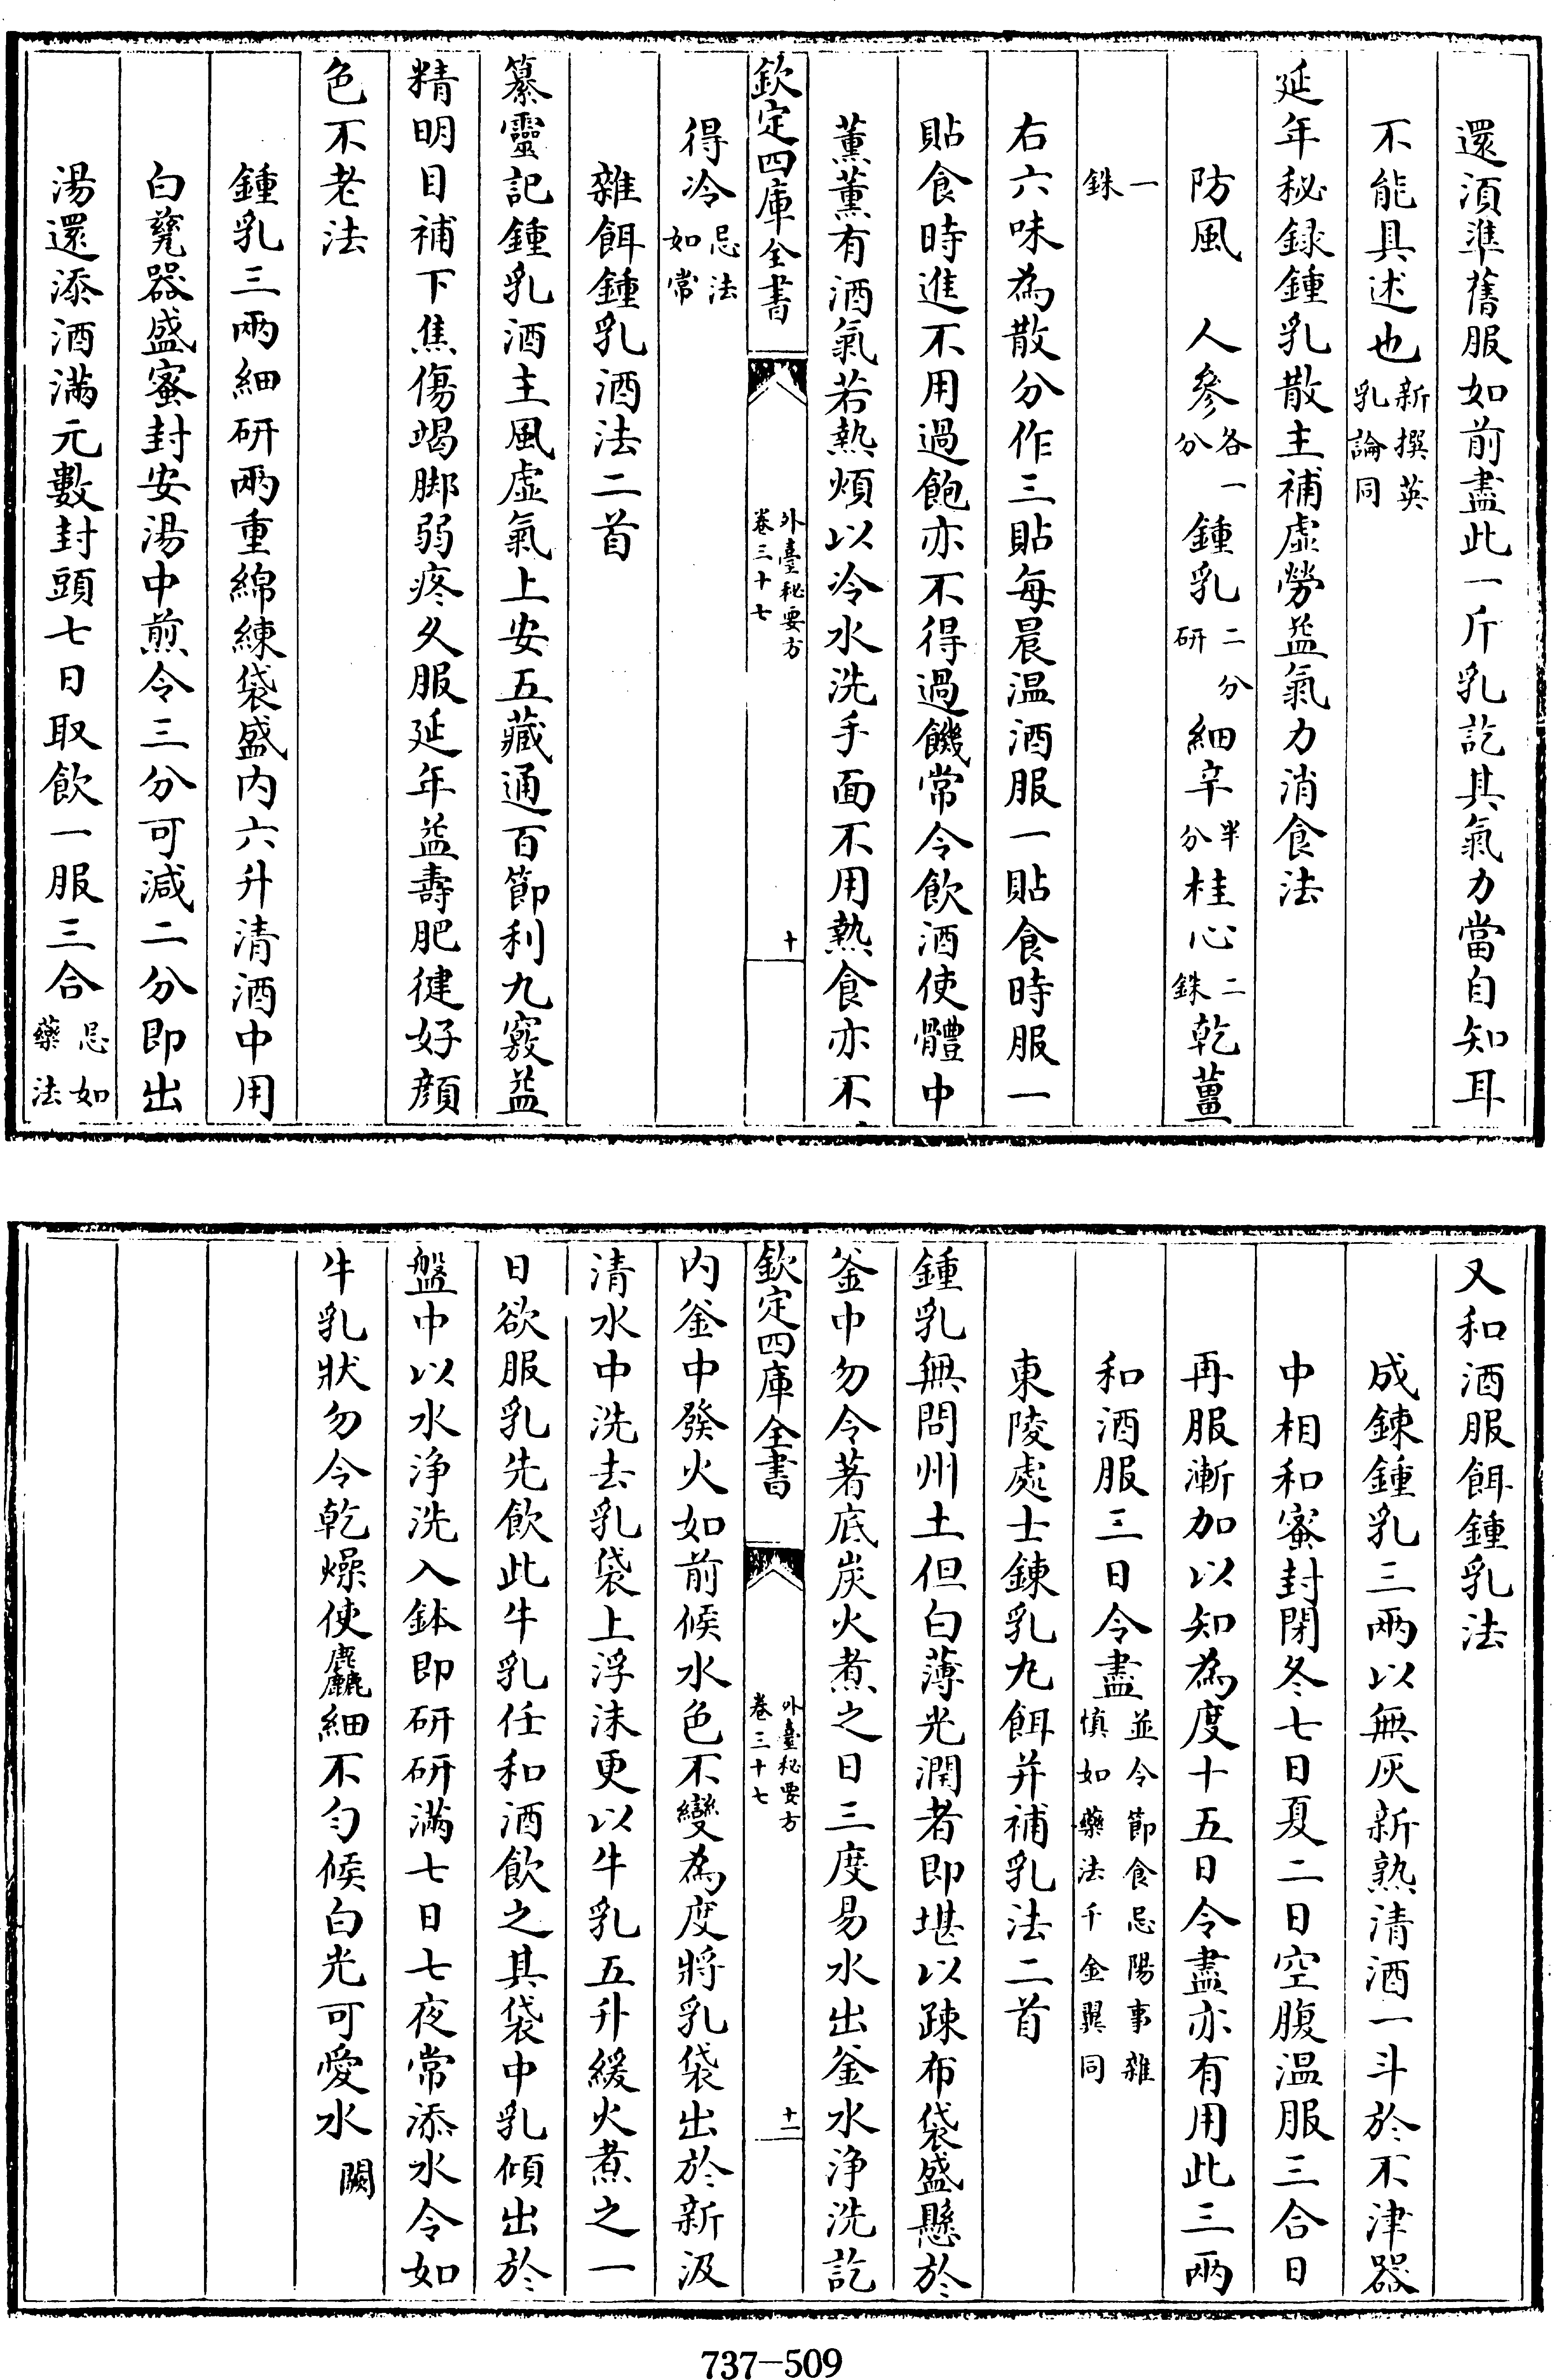 還須準舊服如前盡此一斤乳訖其氣力當自知耳
不能具述也新撰英乳論同
延年秘録鍾乳散主補虚勞益氣力消食法
防風　人參各一分　鍾乳二分研　細辛半分　桂心二銖　乾薑
一銖
右六味為散分作三貼每晨温酒服一貼食時服一
貼食時進不用過飽亦不得過饑常令飲酒使體中
薫薫有酒氣若熱煩以冷水洗手面不用熱食亦不
欽定四庫全書　外臺秘要方卷三十七　十
得冷忌法如常
雜餌鍾乳酒法二首
纂靈記鍾乳酒主風虚氣上安五藏通百節利九竅益
精明目補下焦傷竭脚弱疼久服延年益壽肥健好顔
色不老法
鍾乳三兩細研兩重綿練袋盛内六升清酒中用
白甆器盛蜜封安湯中煎令三分可減二分即出
湯還添酒滿元數封頭七日取飲一服三合忌如藥法
又和酒服餌鍾乳法
成鍊鍾乳三兩以無灰新熟清酒一斗於不津器
中相和蜜封閉冬七日夏二日空腹温服三合日
再服漸加以知為度十五日令盡亦有用此三兩
和酒服三日令盡並令節食忌陽事雜慎如藥法千金翼同
東陵處士鍊乳丸餌并補乳法二首
鍾乳無問州土但白薄光潤者即堪以疎布袋盛懸於
釜中勿令著底炭火煮之日三度易水出釜水净洗訖
欽定四庫全書　外臺秘要方卷三十七　十一
内釜中發火如前候水色不變為度將乳袋出於新汲
清水中洗去乳袋上浮沫更以牛乳五升緩火煮之一
日欲服乳先飲此牛乳任和酒飲之其袋中乳傾出於
盤中以水净洗入鉢即研研滿七日七夜常添水令如
牛乳狀勿令乾燥使麤細不勻候白光可愛水　闕
737-509